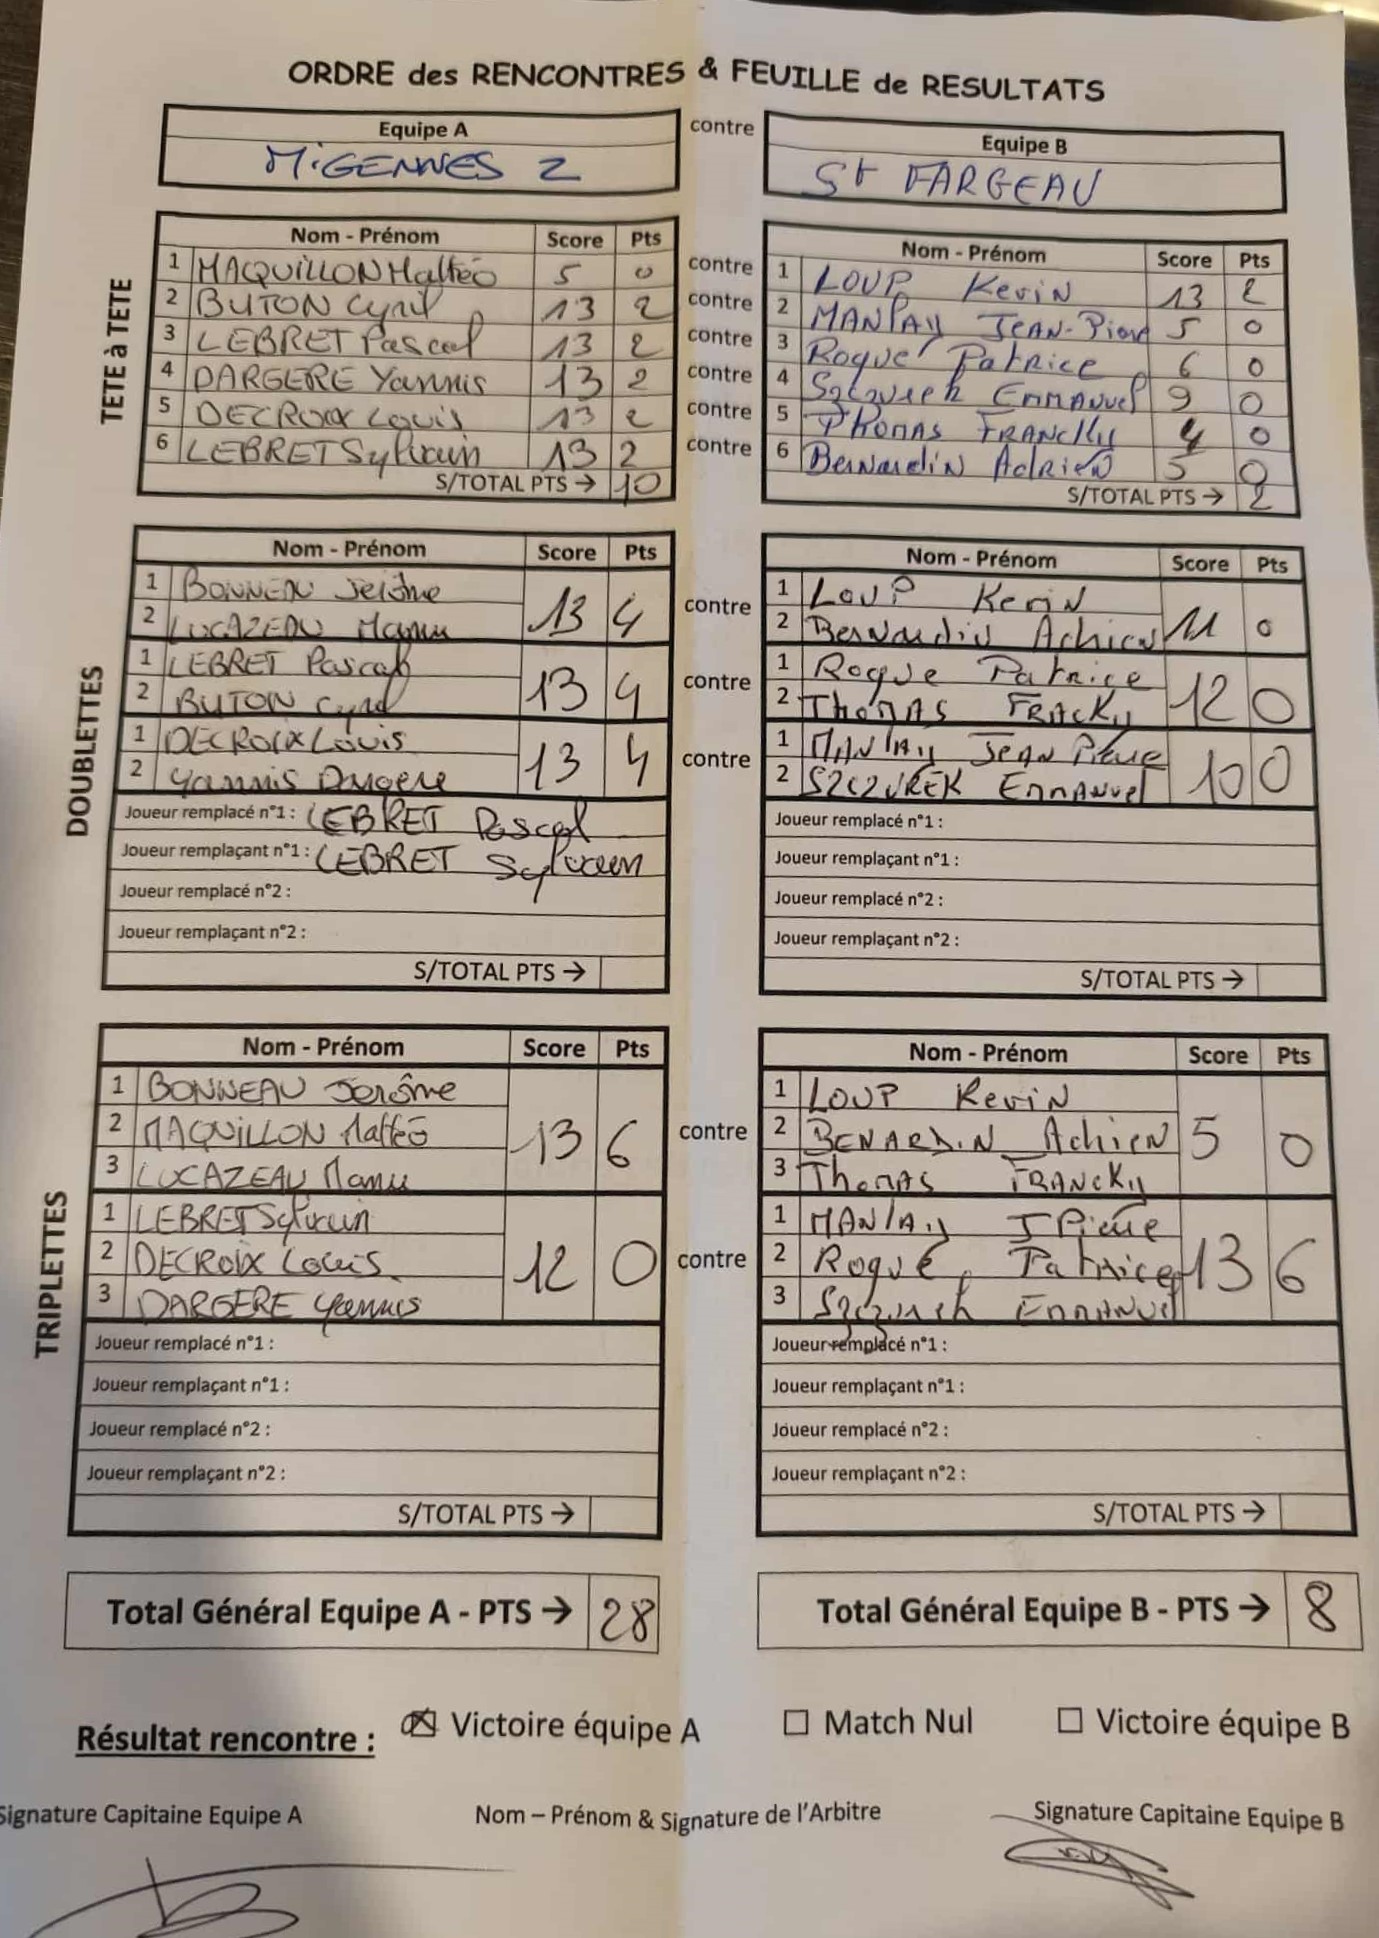 ORDRE des RENCONTRES & FEUILLE de RESULTATS
Equipe A contre Equipe B
MIGENNES 2 St FARGEAU
TETE à TETE
Nom - Prénom Score Pts Nom - Prénom Score Pts
1 MAQUILLON Mattéo 5 0 contre 1 LOUP Kevin 13 2
2 BUTON Cyril 13 2 contre 2 MANLAY JEAN-Pierre 5 0
3 LEBRET Pascal 13 2 contre 3 Roque Patrice 6 0
4 DARGERE Yannis 13 2 contre 4 Szczurek EMMANUEL 9 0
5 DECROIX Louis 13 2 contre 5 THOMAS FRANCKy 4 0
6 LEBRET Sylvain 13 2 contre 6 Bernardin Adrien 5 0
S/TOTAL PTS → 10 S/TOTAL PTS → 2
DOUBLETTES
Nom - Prénom Score Pts Nom - Prénom Score Pts
1 BONNEAU Jérôme 13 4 contre 1 LOUP Kevin 11 0
2 LUCAZEAU Manu 2 Bernardin Adrien
1 LEBRET Pascal 13 4 contre 1 Roque Patrice 12 0
2 BUTON Cyril 2 Thomas FRACKy
1 DECROIX Louis 13 4 contre 1 MANLAY JEAN Pierre 10 0
2 Yannis Dargere 2 SZCZUREK EMMANUEL
Joueur remplacé n°1 : LEBRET Pascal Joueur remplacé n°1 :
Joueur remplaçant n°1 : LEBRET Sylvain Joueur remplaçant n°1 :
Joueur remplacé n°2 : Joueur remplacé n°2 :
Joueur remplaçant n°2 : Joueur remplaçant n°2 :
S/TOTAL PTS → S/TOTAL PTS →
TRIPLETTES
Nom - Prénom Score Pts Nom - Prénom Score Pts
1 BONNEAU Jerôme 1 LOUP Kevin
2 MAQUILLON Mattéo 13 6 contre 2 BENARDIN Adrien 5 0
3 LUCAZEAU Manu 3 Thomas FRANCKy
1 LEBRET Sylvain 1 MANLAY J Pierre
2 DECROIX Louis 12 0 contre 2 Roque Patrice 13 6
3 DARGERE Yannis 3 Szczurek EMMANUEL
Joueur remplacé n°1 : Joueur remplacé n°1 :
Joueur remplaçant n°1 : Joueur remplaçant n°1 :
Joueur remplacé n°2 : Joueur remplacé n°2 :
Joueur remplaçant n°2 : Joueur remplaçant n°2 :
S/TOTAL PTS → S/TOTAL PTS →
Total Général Equipe A - PTS → 28 Total Général Equipe B - PTS → 8
Résultat rencontre : ☒ Victoire équipe A ☐ Match Nul ☐ Victoire équipe B
Signature Capitaine Equipe A Nom – Prénom & Signature de l'Arbitre Signature Capitaine Equipe B